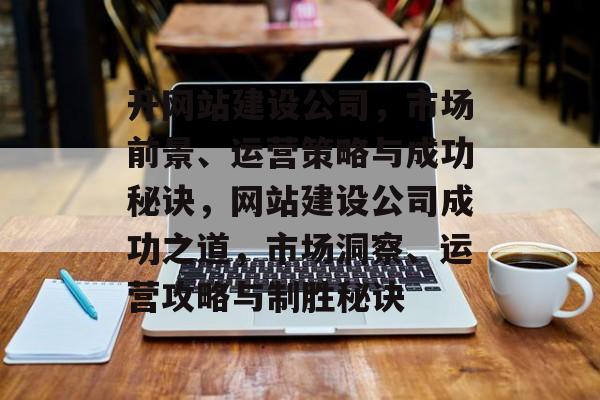 开网站建设公司，市场
前景、运营策略与成功
秘诀，网站建设公司成
功之道，市场洞察、运
营攻略与制胜秘诀